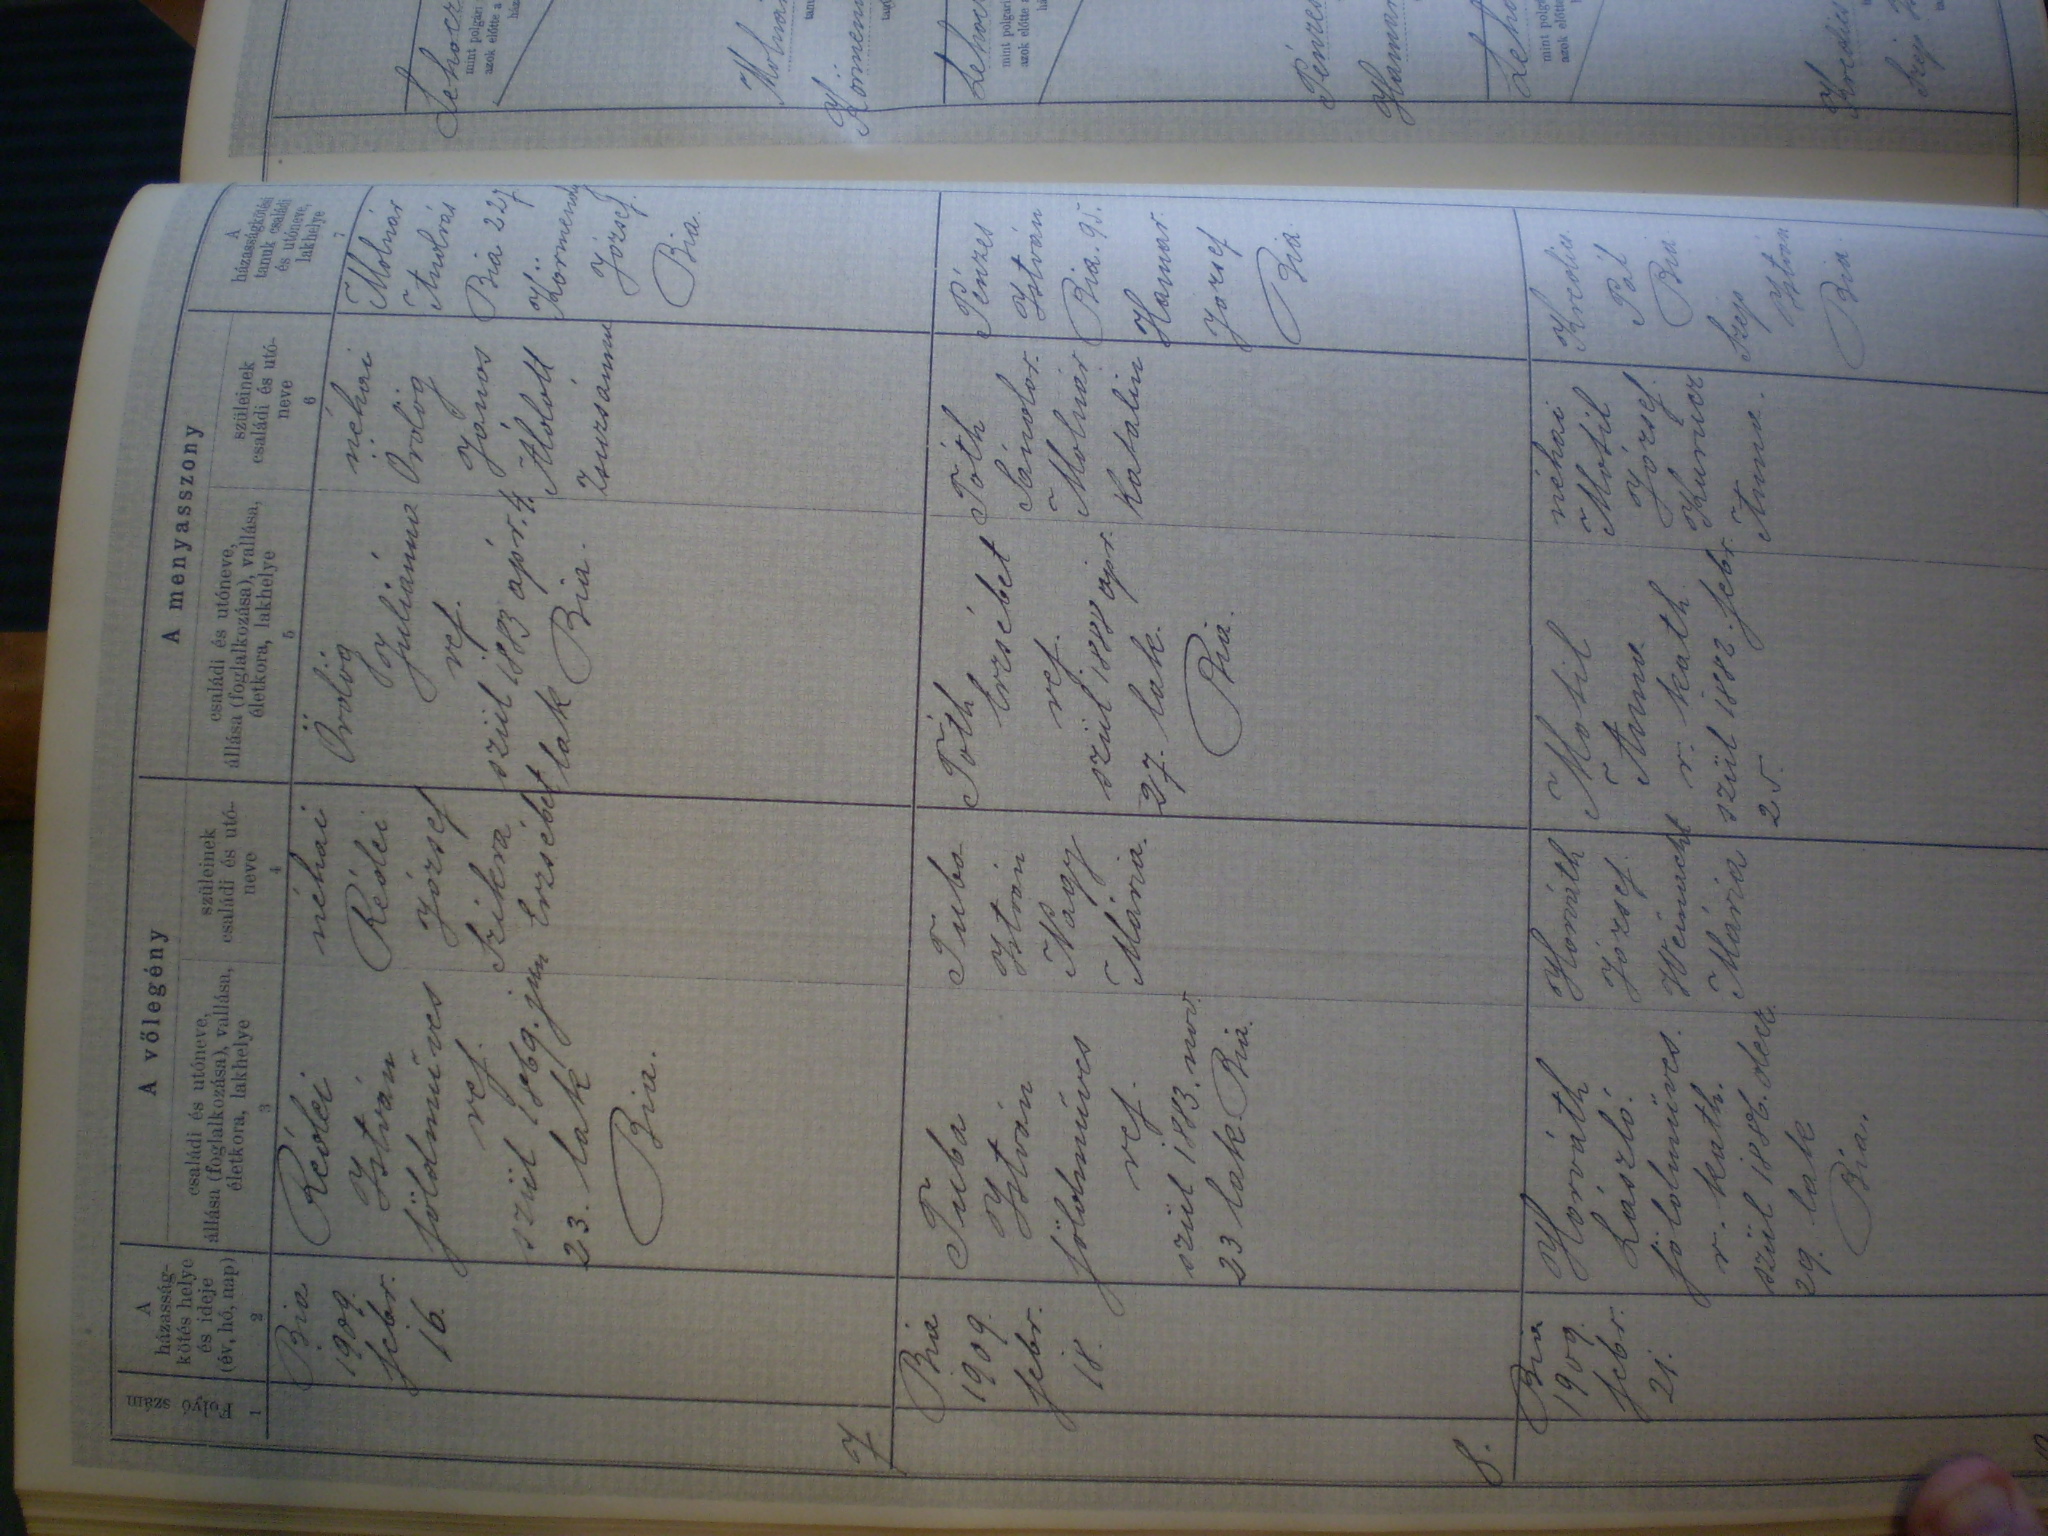 A vőlegény
A menyasszony
Folyó szám
A
házasság-
kötés helye
és ideje
(év, hó, nap)
családi és utóneve,
állása (foglalkozása), vallása,
életkora, lakhelye
szüleinek
családi és utó-
neve
családi és utóneve,
állása (foglalkozása), vallása,
életkora, lakhelye
szüleinek
családi és utó-
neve
A
házasságkötési
tanuk családi
és utóneve,
lakhelye
1
2
3
4
5
6
7
7
Bia
1909.
febr.
16.
Rédei
István
földmüves
ref.
szül 1869. jun
23. lak
Bia.
néhai
Rédei
József
Szikra
Erzsébet
Ördög
Juliánna
ref.
szül 1883 ápr. 4.
lak Bia.
néhai
Ördög
János
Molnár
András
Bia 227
Körmendi
József.
Bia.
8.
Bia
1909.
febr.
18.
Tuba
István
földmüves
ref.
szül 1883. nov.
23 lak. Bia.
Tuba
István
Nagy
Mária.
Tóth
Erzsébet
ref.
szül 1888 ápr.
27. lak.
Bia.
Tóth
Sándor.
Molnár
Katalin
Pénzes
István
Bia. 95.
Hamar.
József
Bia.
Bia
1909.
febr.
21.
Horváth
László.
földmüves.
r. kath.
szül 1886. decz.
29. lak
Bia.
Horváth
József.
Mária
Anna
r. kath.
szül 1882. febr.
25.
néhai
József.
Anna.
Pál
Bia
Szép
István
Bia.
mint polgári
azok előtte a
mint polgári
azok előtte a
mint polg
azok előtt
Pénzes
Hamar